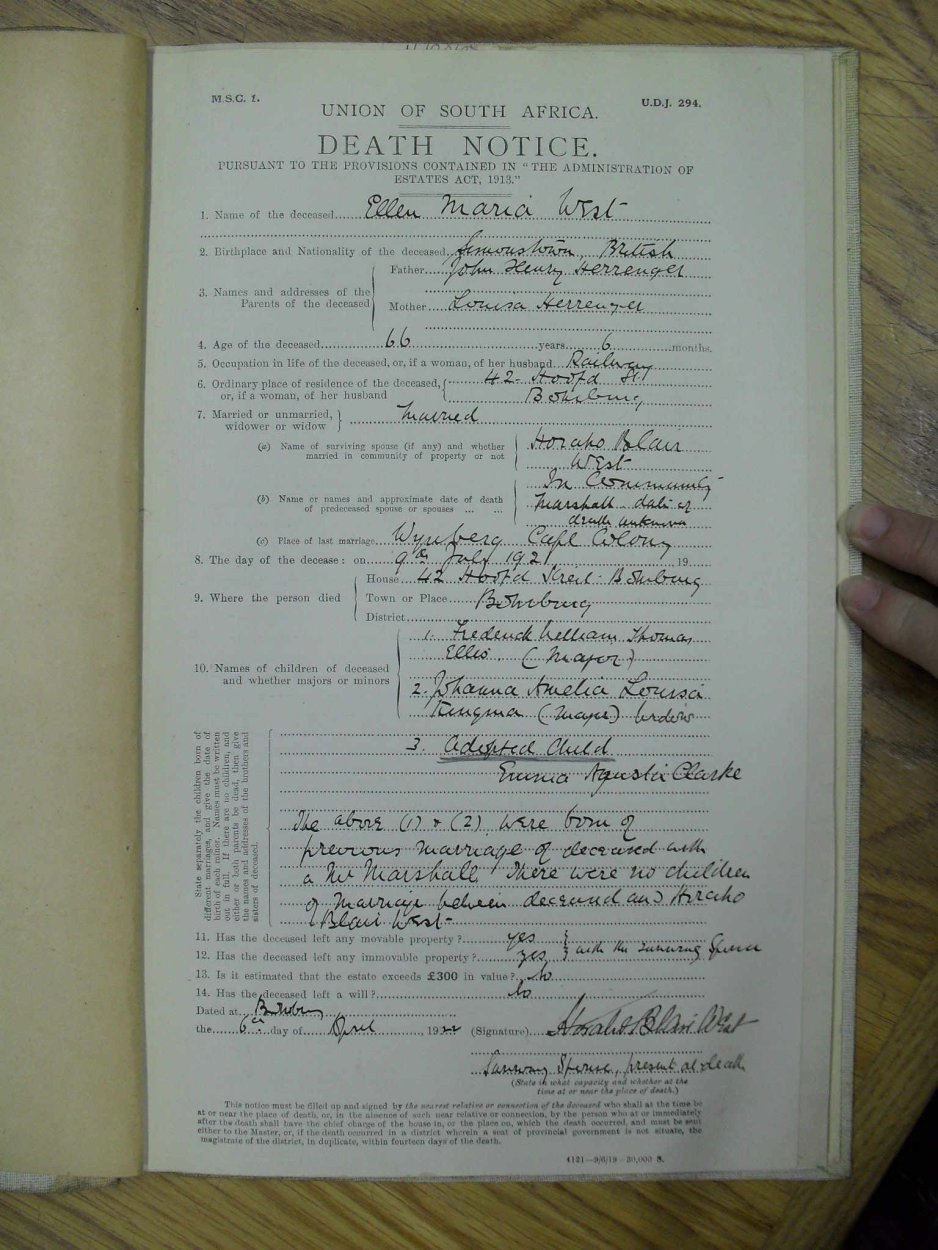 M.S.C. 1.
U.D.J. 294.
UNION OF SOUTH AFRICA.
DEATH NOTICE.
PURSUANT TO THE PROVISIONS CONTAINED IN "THE ADMINISTRATION OF
ESTATES ACT, 1913."
1. Name of the deceased Ellen Maria West
2. Birthplace and Nationality of the deceased, Simonstown, British
3. Names and addresses of the Parents of the deceased
Father John Henry Herrenger
Mother Louisa Herrenger
4. Age of the deceased 66 years 6 months.
5. Occupation in life of the deceased, or, if a woman, of her husband Railway
6. Ordinary place of residence of the deceased, 42 Hoofd St
or, if a woman, of her husband
7. Married or unmarried, widower or widow Married
(a) Name of surviving spouse (if any) and whether married in community of property or not
Blair
West
In Community
(b) Name or names and approximate date of death of predeceased spouse or spouses ... ...
Marshall date of
death unknown
(c) Place of last marriage Wynberg Cape Colony
8. The day of the decease: on 9th July 1921 19
9. Where the person died
House 42 Hoofd Street
Town or Place
District
10. Names of children of deceased and whether majors or minors
1. Frederick William Thomas
Ellis (Major)
2. Johanna Amelia Louisa
(Major) widow
3. Adopted Child
Emma Clarke
State separately the children born of different marriages, and give the date of birth of each minor. Names must be written out in full. If there are no children, and either or both parents be dead, then give the names and addresses of the brothers and sisters of deceased.
The above (1) & (2) were born of
previous marriage of deceased with
a Mr Marshall There were no children
of marriage between deceased and
Blair West
11. Has the deceased left any movable property? yes
12. Has the deceased left any immovable property? yes
with the surviving Spouse
13. Is it estimated that the estate exceeds £300 in value? No
14. Has the deceased left a will? No
Dated at
the 6th day of April, 1922 (Signature) Blair West
Surviving Spouse, present at death
(State in what capacity and whether at the
time at or near the place of death.)
This notice must be filled up and signed by the nearest relative or connection of the deceased who shall at the time be
at or near the place of death, or, in the absence of such near relative or connection, by the person who at or immediately
after the death shall have the chief charge of the house in, or the place on, which the death occurred, and must be sent
either to the Master, or, if the death occurred in a district wherein a seat of provincial government is not situate, the
magistrate of the district, in duplicate, within fourteen days of the death.
4121—9/6/19—30,000 S.